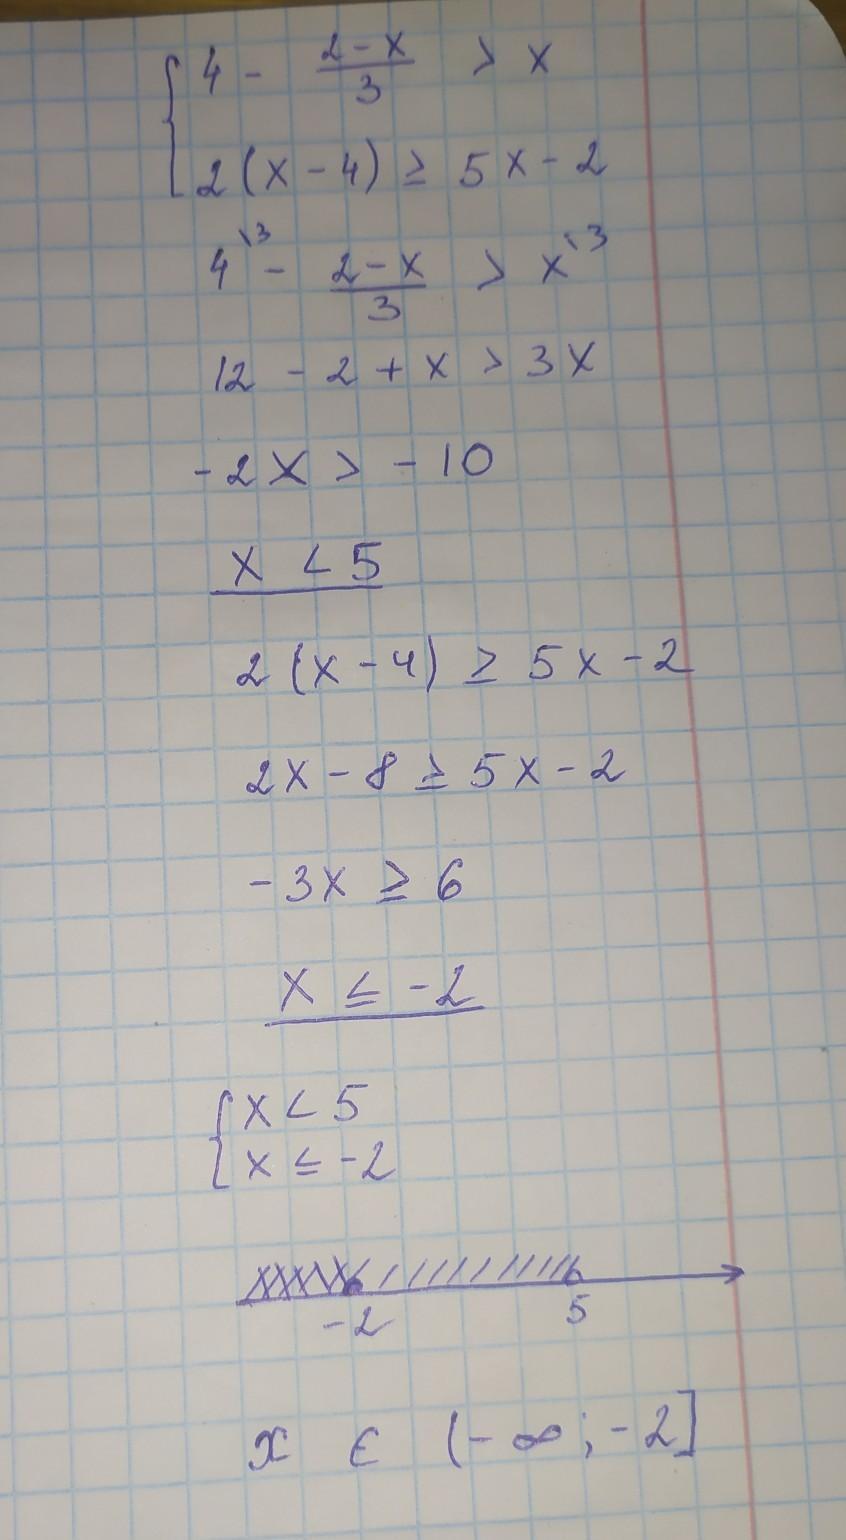 { 4 - (2-x)/3 > x
2(x-4) ≥ 5x-2
4\3 - (2-x)/3 > x\3
12 - 2 + x > 3x
-2x > -10
x < 5
2(x-4) ≥ 5x-2
2x-8 ≥ 5x-2
-3x ≥ 6
x ≤ -2
{ x < 5
x ≤ -2
-2 5
x ∈ (-∞; -2]